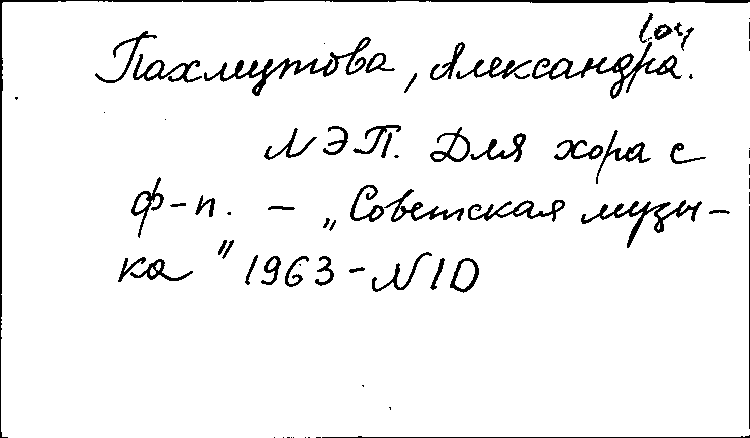 Пахмутова, Александра.
ЛЭП. Для хора с
ф-п. – „Советская музы-
ка" 1963 – N10